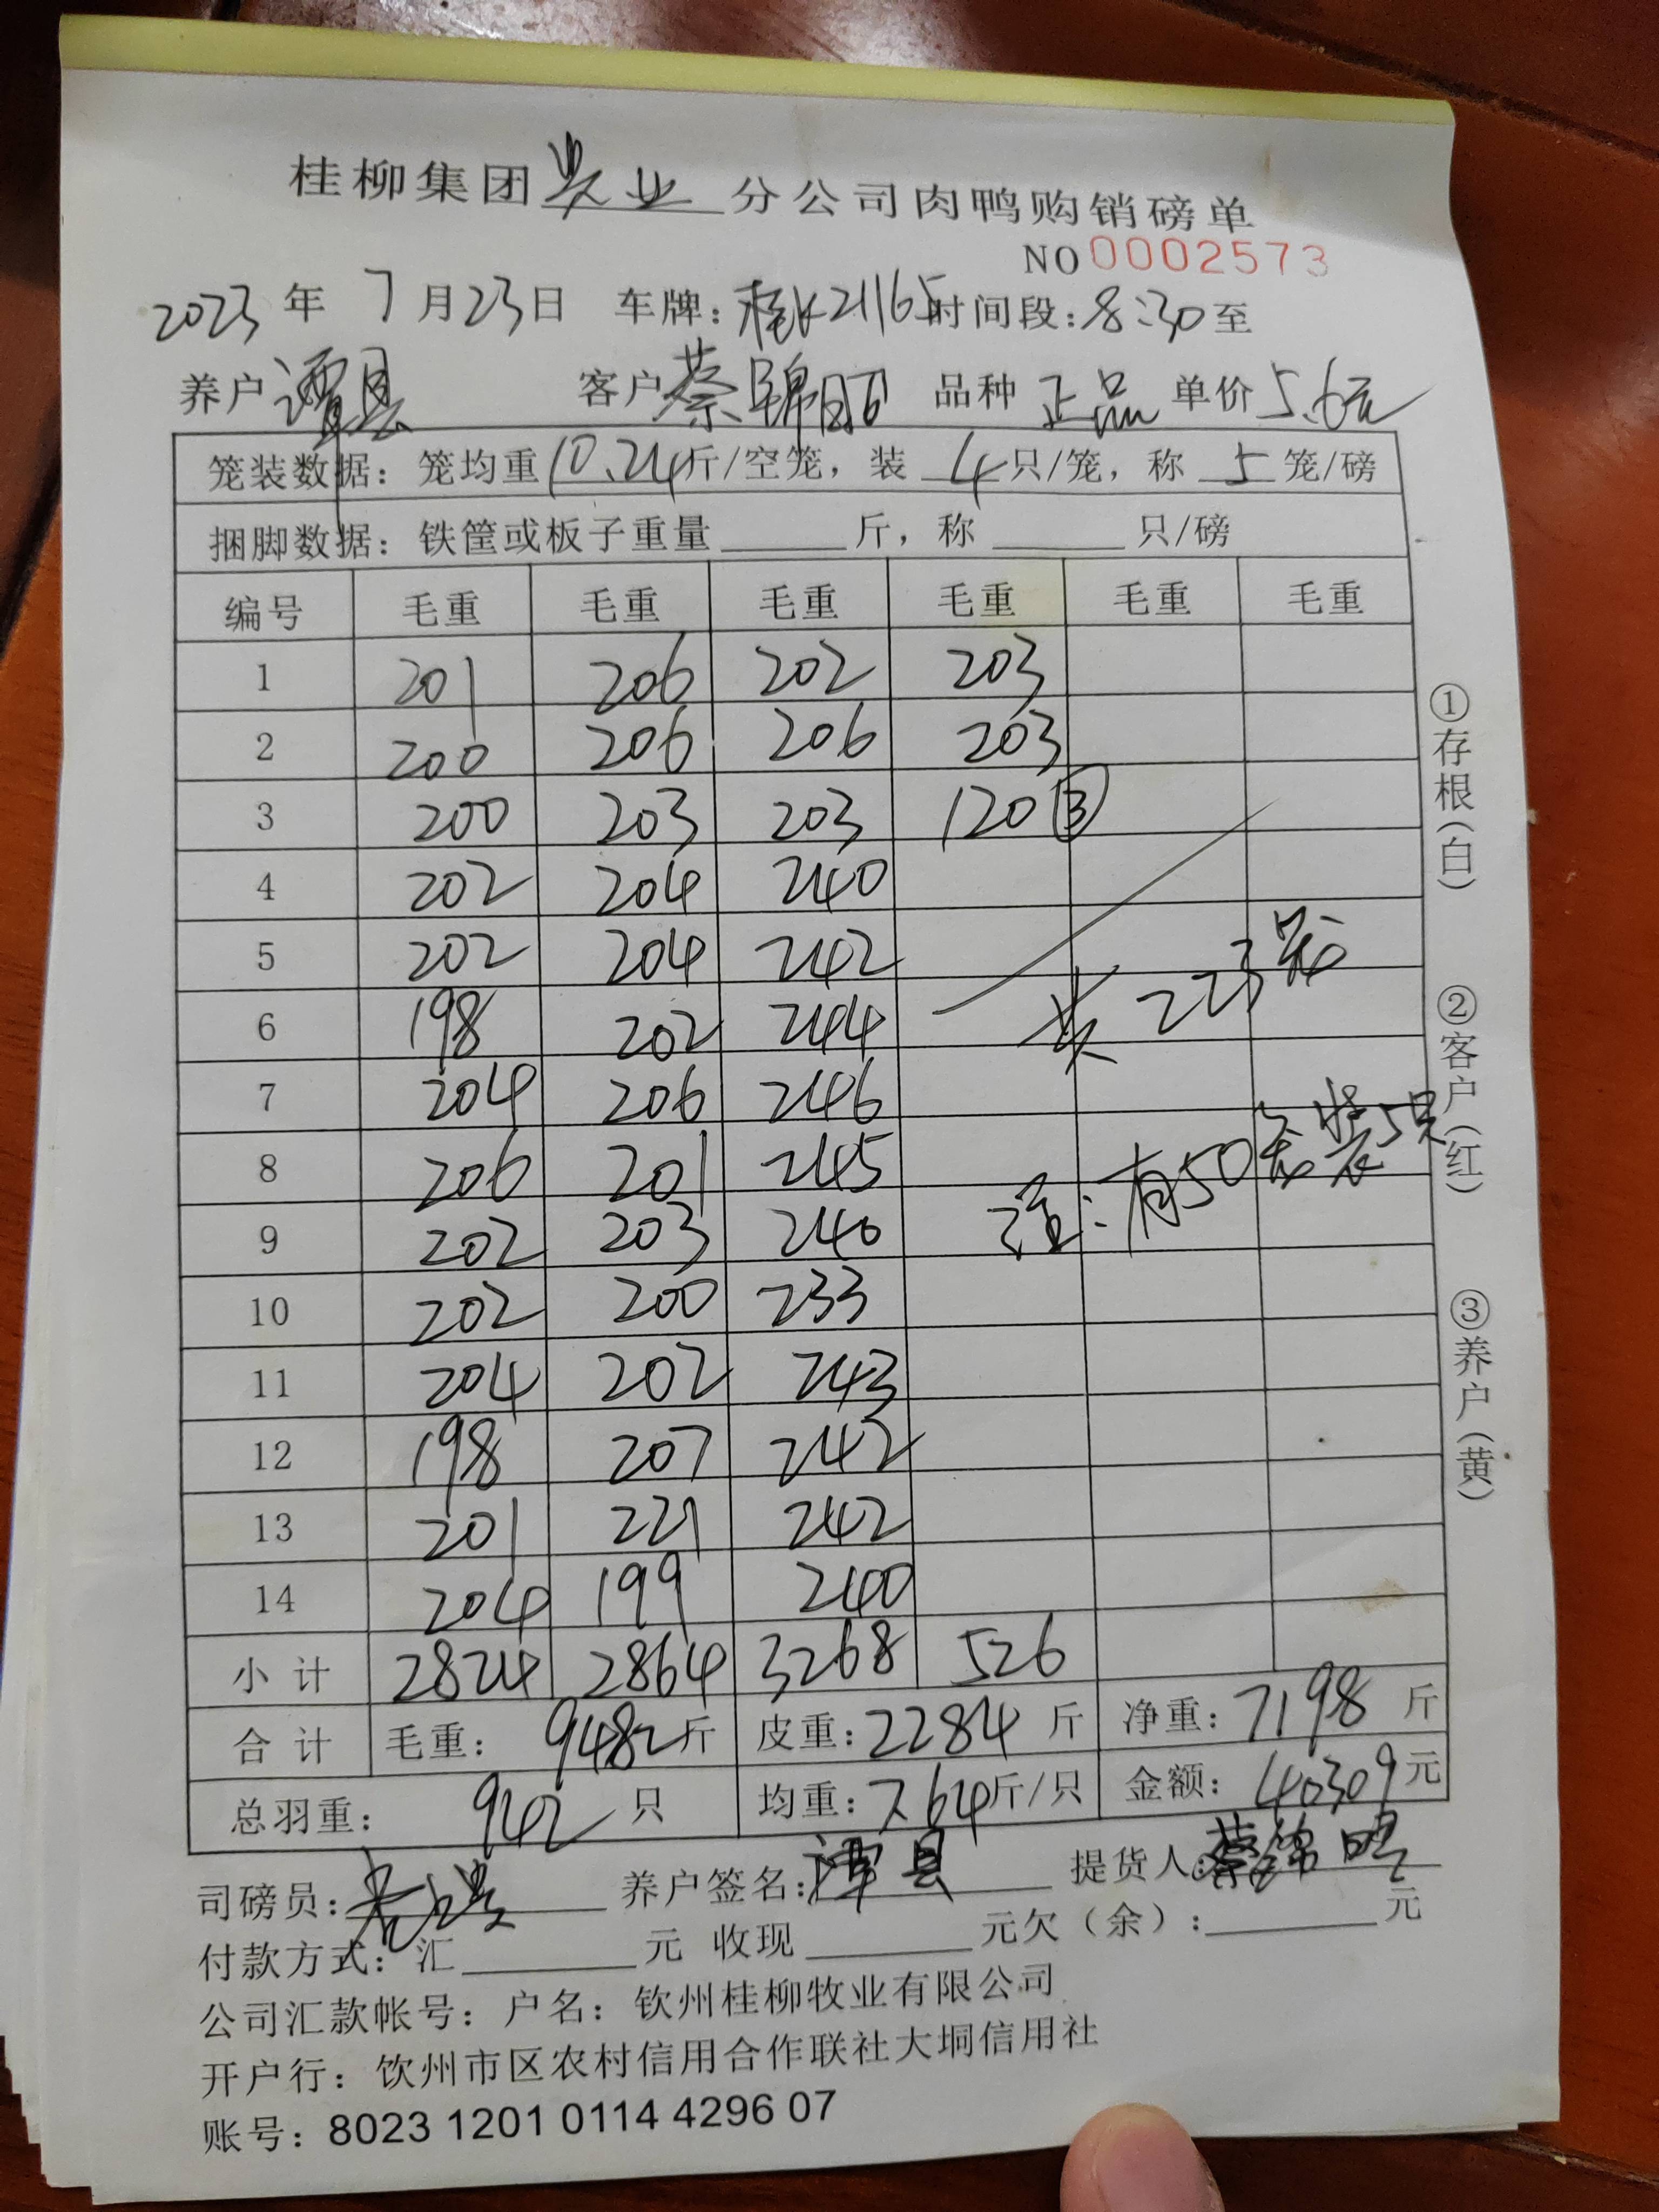 桂柳集团 业 分公司肉鸭购销磅单
NO 0002573
2023 年 7 月 23 日 车牌: 桂K21165 时间段: 8:30 至
养户 谭县 客户 蔡锦 品种 正品 单价 5.6元
笼装数据: 笼均重 10.24 斤/空笼, 装 4 只/笼, 称 5 笼/磅
捆脚数据: 铁筐或板子重量 ______ 斤, 称 ______ 只/磅
编号 毛重 毛重 毛重 毛重 毛重 毛重
1 201 206 202 203
2 200 206 206 203
3 200 203 203 120 ③
4 202 204 240
5 202 204 242
6 198 202 244
7 204 206 246
8 206 201 245
9 202 203 240
10 202 200 233
11 204 202 243
12 198 207 242
13 201 221 242
14 204 199 240
共 223笼
注: 有50笼装5只
小计 2824 2864 3268 526
合计 毛重: 9482 斤 皮重: 2284 斤 净重: 7198 斤
总羽重: 942 只 均重: 7.64 斤/只 金额: 40309 元
司磅员: 养户签名: 谭县 提货人: 蔡锦
付款方式: 汇 ______ 元 收现 ______ 元欠(余): ______ 元
公司汇款帐号: 户名: 钦州桂柳牧业有限公司
开户行: 钦州市区农村信用合作联社大垌信用社
账号: 8023 1201 0114 4296 07
①存根(白)
②客户(红)
③养户(黄)